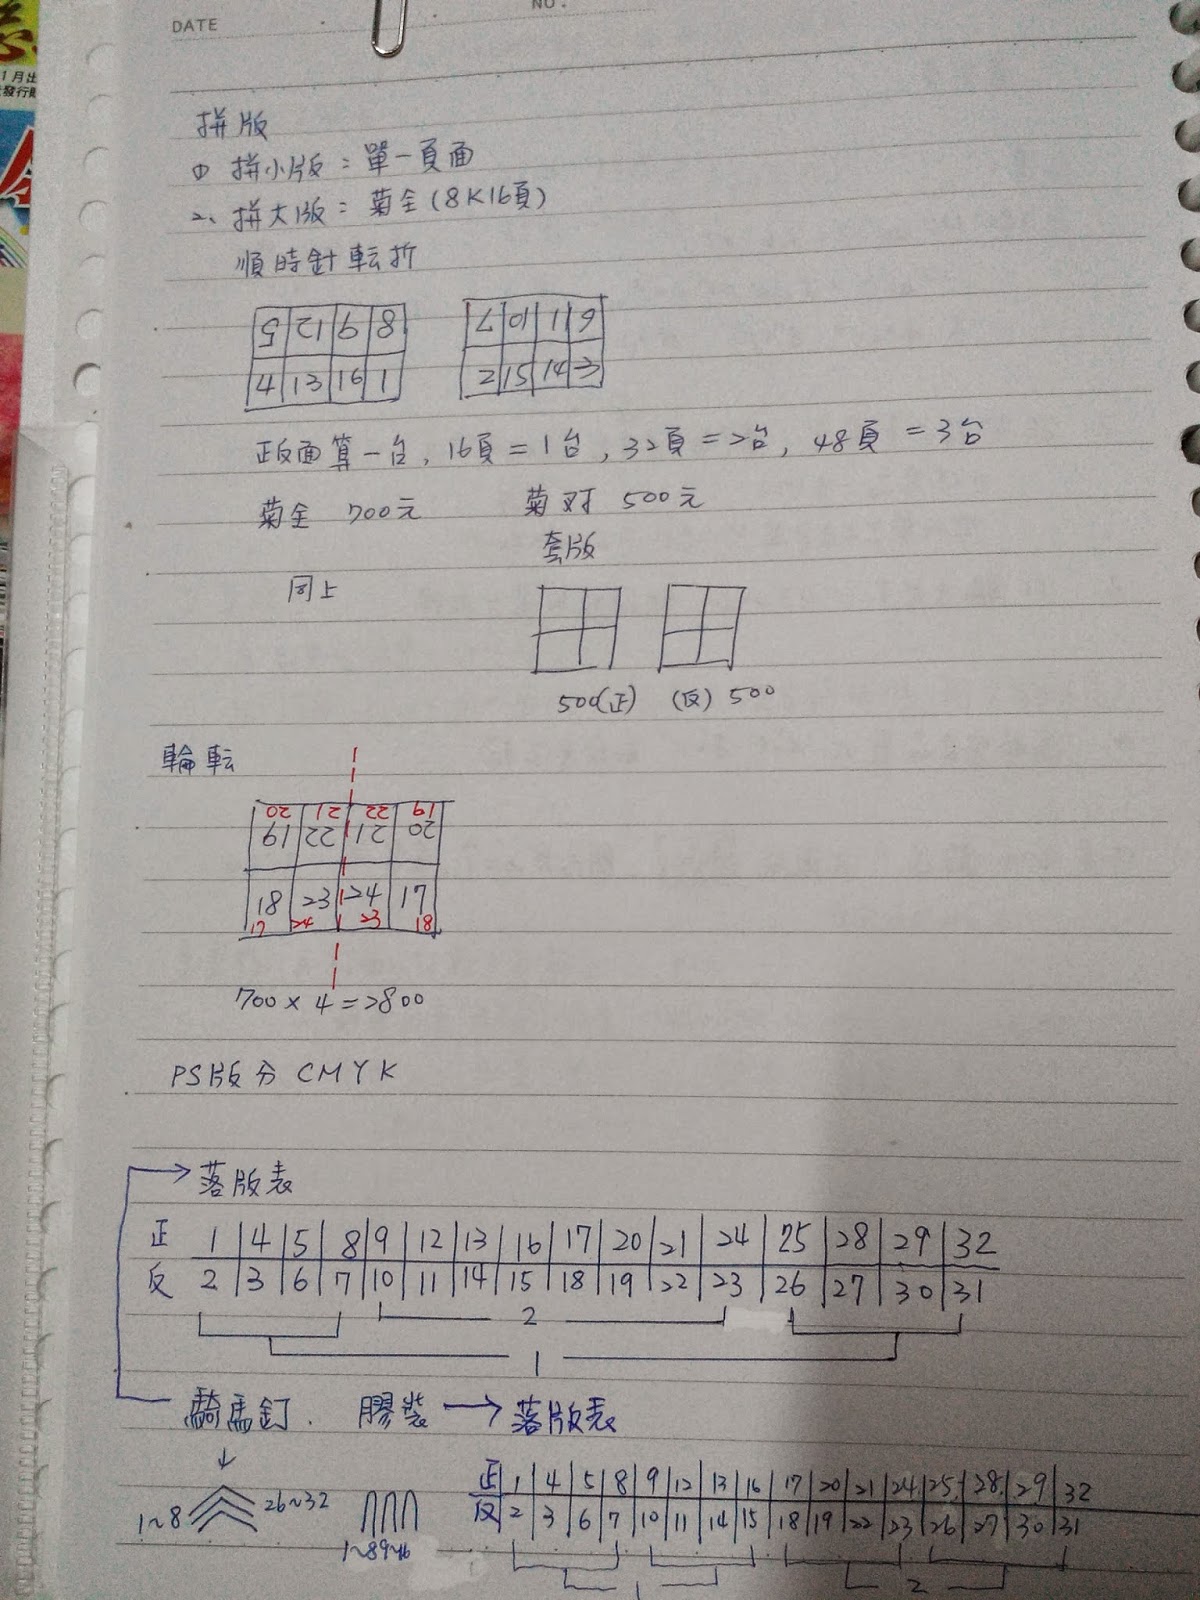 DATE
NO.
1月出
發行
拼版
① 拼小版：單一頁面
2、拼大版：菊全(8K16頁)
順時針転折
5 12 9 8
4 13 16 1
7 10 11 6
2 15 14 3
正反面算一台, 16頁=1台, 32頁=2台, 48頁=3台
菊全 700元
菊对 500元
套版
同上
500(正) (反) 500
輪転
20 21 22 19
19 22 21 20
18 23 24 17
17 24 23 18
700×4=2800
PS版分 CMYK
落版表
正 1 4 5 8 9 12 13 16 17 20 21 24 25 28 29 32
反 2 3 6 7 10 11 14 15 18 19 22 23 26 27 30 31
2
1
騎馬釘. 膠裝 → 落版表
1~8 26~32
1~8 9~16
正 1 4 5 8 9 12 13 16 17 20 21 24 25 28 29 32
反 2 3 6 7 10 11 14 15 18 19 22 23 26 27 30 31
1 2